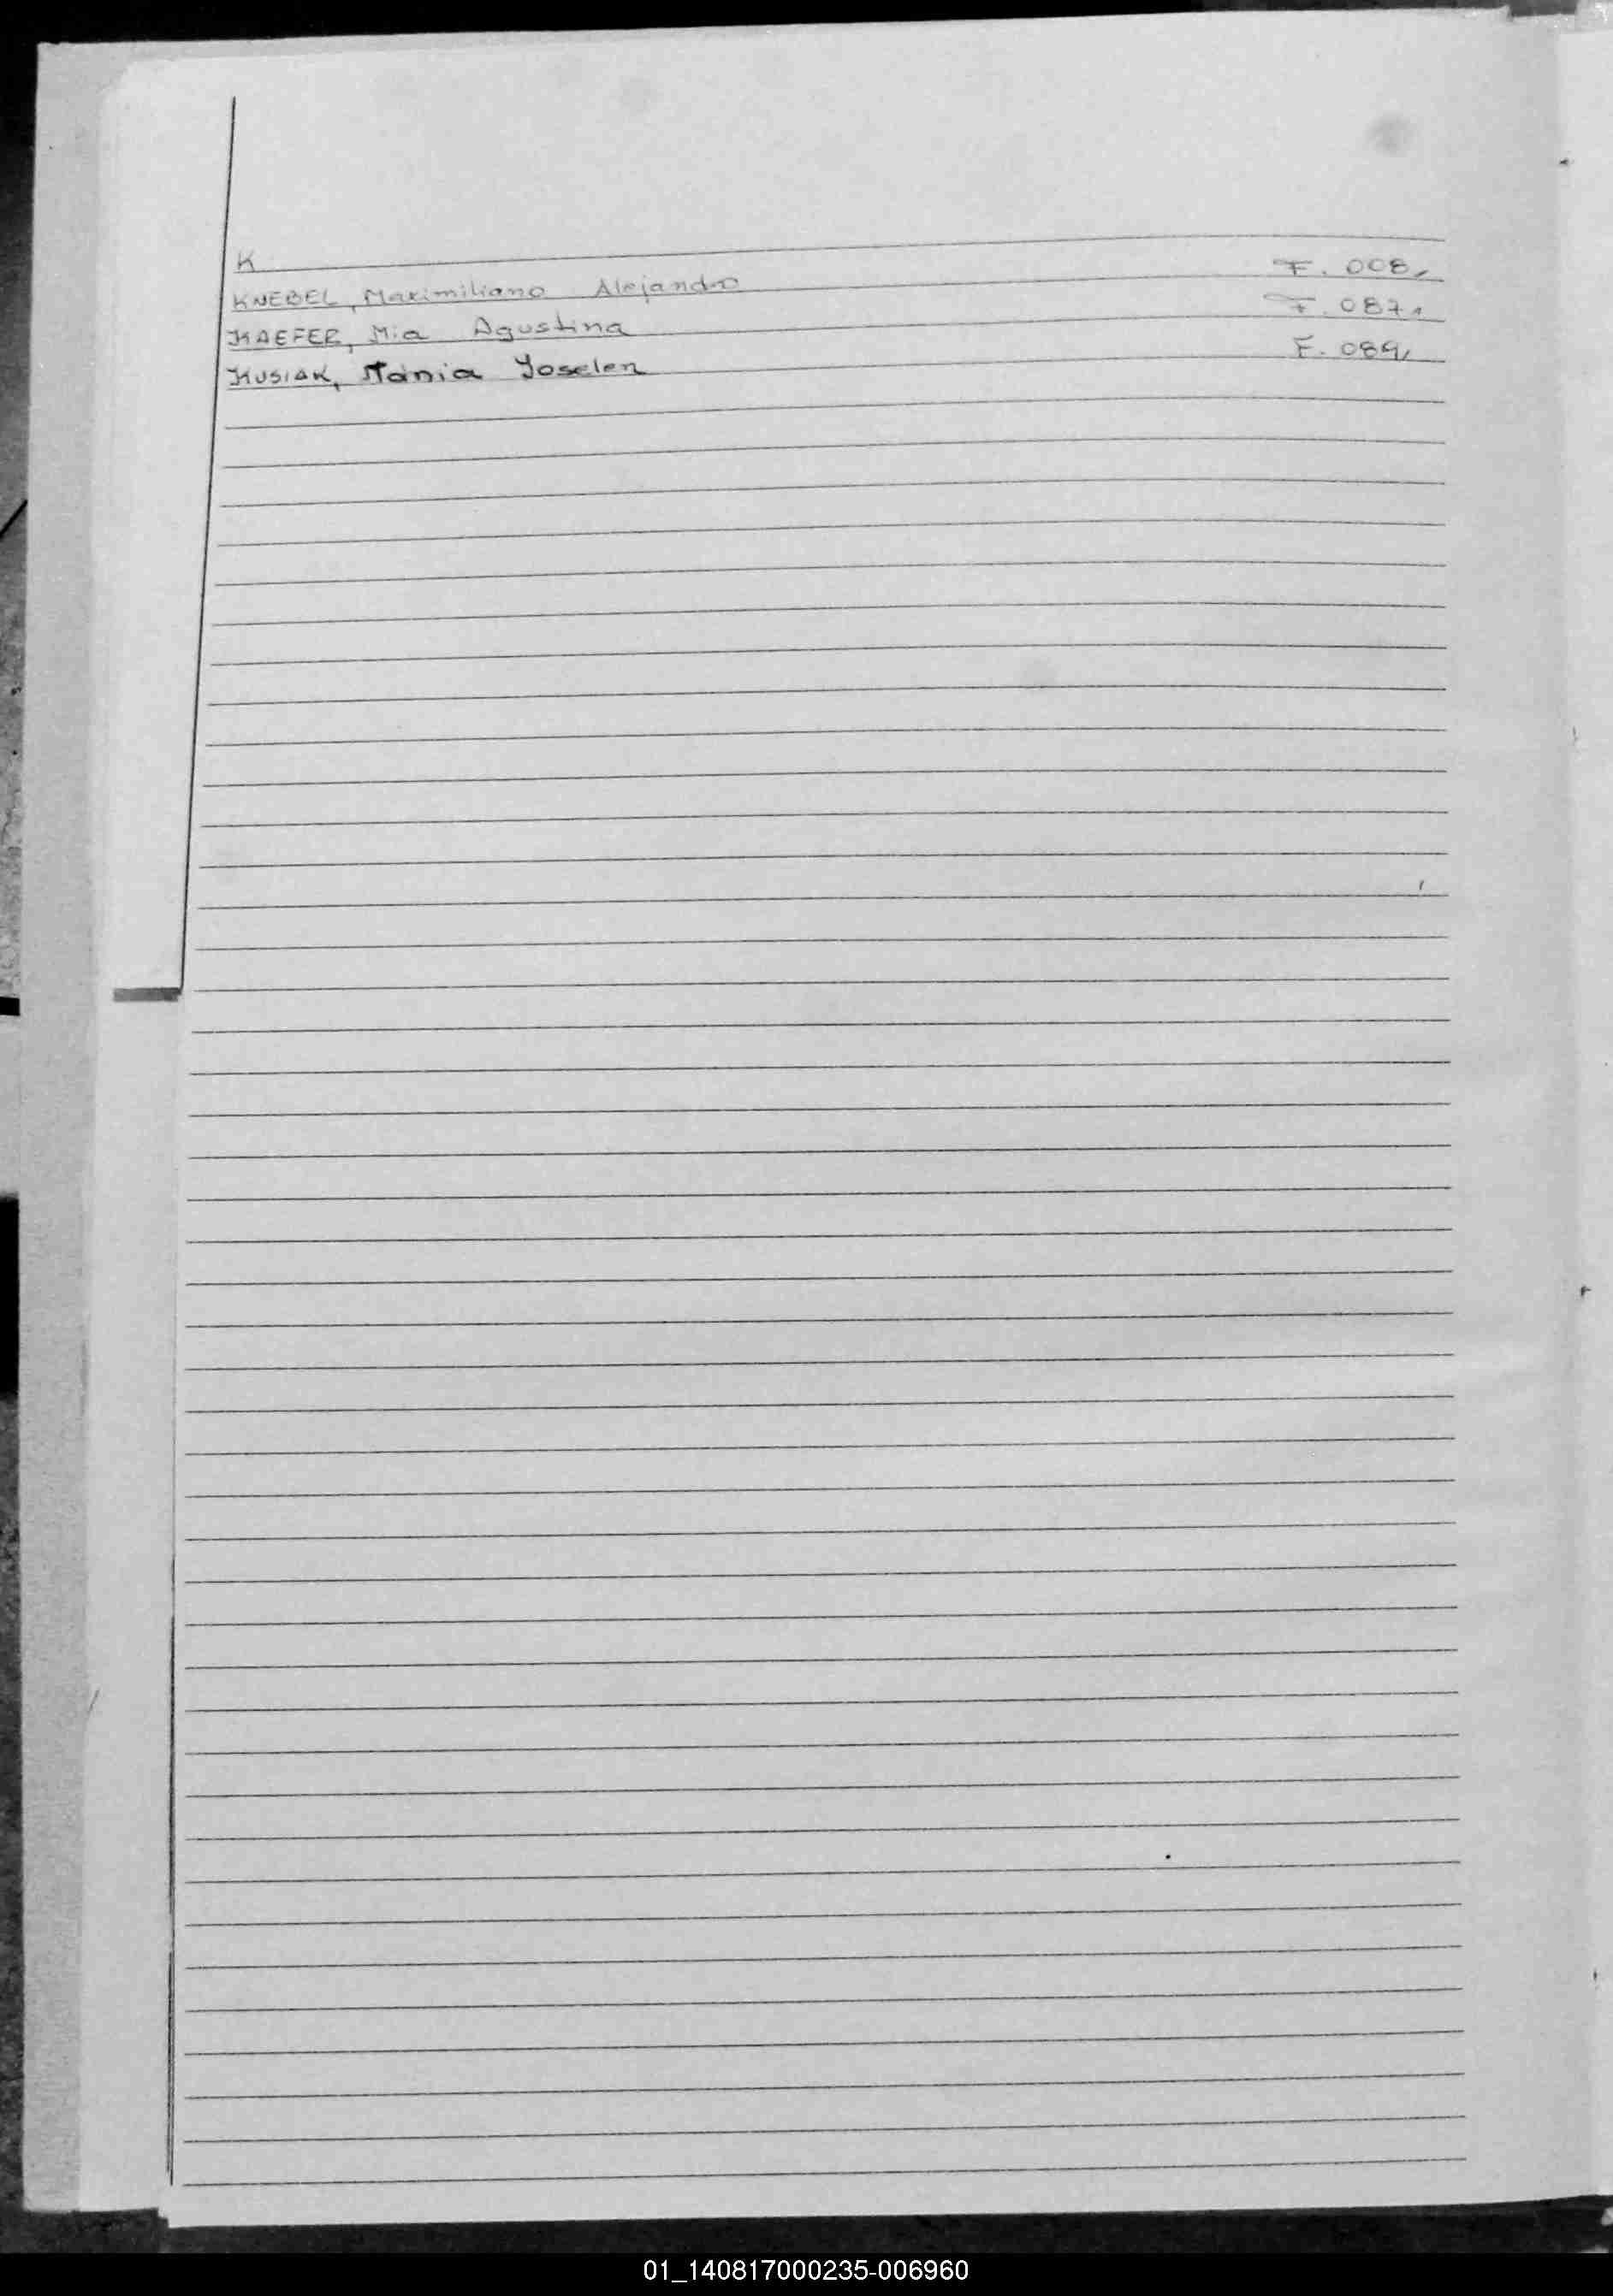 K
KNEBEL, Maximiliano Alejandro F. 008,
KAEFER, Mia Agustina F. 087,
KUSIAK, Tania Yoselen F. 089,
01_140817000235-006960